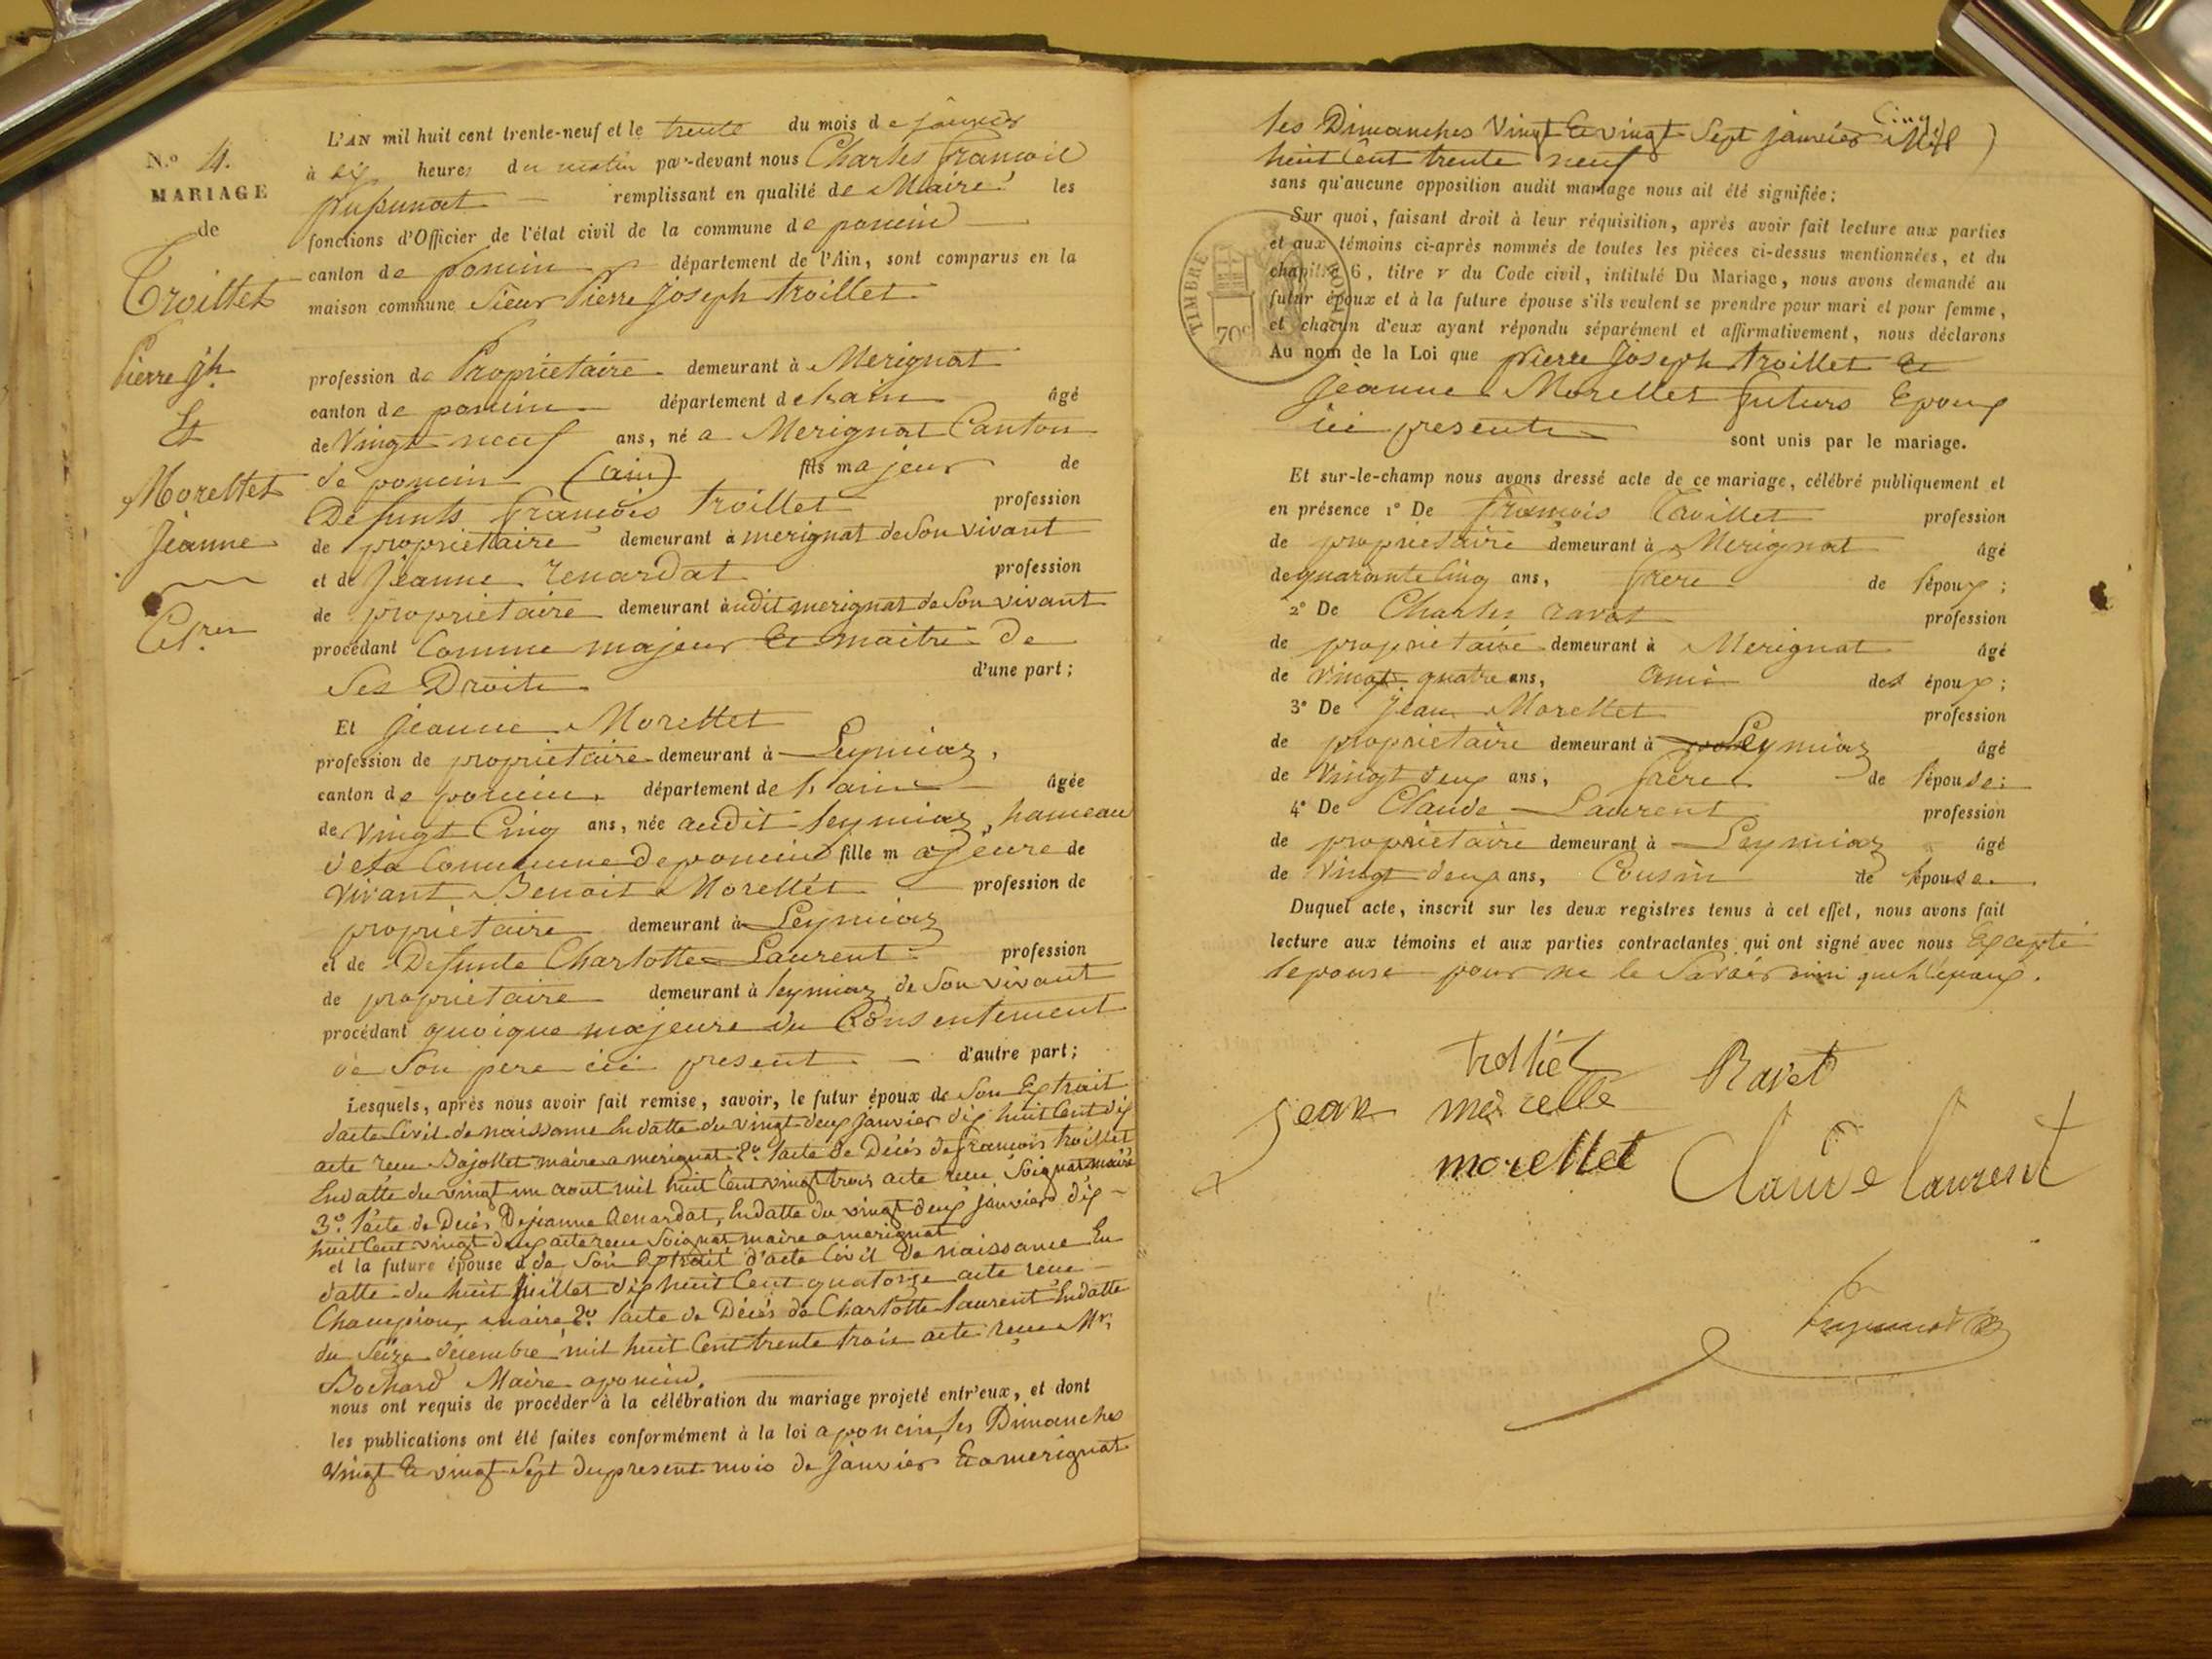 N.º 4.
MARIAGE
de
Troillet
Pierre Jh.
Et
Morellet
Jeanne
L'AN mil huit cent trente-neuf et le trente du mois de janvier
à dix heures du matin par-devant nous Charles francois
remplissant en qualité de Maire les
fonctions d'Officier de l'état civil de la commune de poncin
canton de poncin département de l'Ain, sont comparus en la
maison commune Sieur Pierre Joseph troillet
profession de Propriétaire demeurant à Merignat
canton de poncin département de l'ain âgé
de Vingt neuf ans, né a Merignat Canton
de poncin (ain) fils majeur de
Defunts francois troillet profession
de propriétaire demeurant à merignat de Son vivant
et de Jeanne renardat profession
de propriétaire demeurant audit merignat de Son vivant
procédant Comme majeur Et maitre de
Ses Droits d'une part;
Et Jeanne Morellet
profession de propriétaire demeurant à Leymiaz,
canton de poncin département de l'ain âgée
de Vingt Cinq ans, née audit leymiaz, hameau
de la Commune de poncin fille majeure de
vivant Benoit Morellet profession de
propriétaire demeurant à Leymiaz
et de Defunte Charlotte Laurent profession
de propriétaire demeurant à leymiaz de Son vivant
procédant quoique majeure du Consentement
de Son pere ici present d'autre part;
Lesquels, après nous avoir fait remise, savoir, le futur époux de Son Extrait
dacte Civil de naissance En datte du vingt deux janvier dix huit Cent dix
acte recu Bajollet maire a merignat 2º. lacte de Décés de francois troillet
En datte du vingt un aout mil huit Cent vingt trois acte recu Soignat maire
3º. l'acte de Décés De jeanne Renardat, En datte du vingt deux janvier dix
huit Cent vingt deux acte recu Soignat maire a merignat
et la future épouse de Son Extrait d'acte Civil de naissance En
datte du huit Juillet dix huit Cent quatorze acte recu
Champion, maire 2º. l'acte de Décés de Charlotte laurent En datte
du Seize décembre mil huit Cent trente trois acte recu Mr.
Bochard Maire a poncin.
nous ont requis de procéder à la célébration du mariage projeté entr'eux, et dont
les publications ont été faites conformément à la loi a poncin, les Dimanches
vingt Et vingt Sept du present mois de Janvier Et a merignat
les Dimanches Vingt Et vingt Sept janvier Mil
huit Cent trente neuf
sans qu'aucune opposition audit mariage nous ait été signifiée;
Sur quoi, faisant droit à leur réquisition, après avoir fait lecture aux parties
et aux témoins ci-après nommés de toutes les pièces ci-dessus mentionnées, et du
chapitre 6, titre v du Code civil, intitulé Du Mariage, nous avons demandé au
futur époux et à la future épouse s'ils veulent se prendre pour mari et pour femme,
et chacun d'eux ayant répondu séparément et affirmativement, nous déclarons
Au nom de la Loi que pierre Joseph troillet Et
Jeanne Morellet futurs Epoux
ici presents sont unis par le mariage.
TIMBRE ROYAL
70c
Et sur-le-champ nous avons dressé acte de ce mariage, célébré publiquement et
en présence 1º De François Troillet profession
de propriétaire demeurant à Merignat âgé
de quarante Cinq ans, frere de l'époux;
2º De Charles ravet profession
de propriétaire demeurant à Merignat âgé
de vingt quatre ans, ami des époux;
3º De Jean Morellet profession
de propriétaire demeurant à Leymiaz âgé
de Vingt deux ans, frère de l'épouse;
4º De Claude Laurent profession
de propriétaire demeurant à Leymiaz âgé
de Vingt deux ans, Cousin de l'épouse.
Duquel acte, inscrit sur les deux registres tenus à cet effet, nous avons fait
lecture aux témoins et aux parties contractantes qui ont signé avec nous Excepté
lepouse pour ne le Savoir
Ravet
jean morelle
morellet
Claude laurent